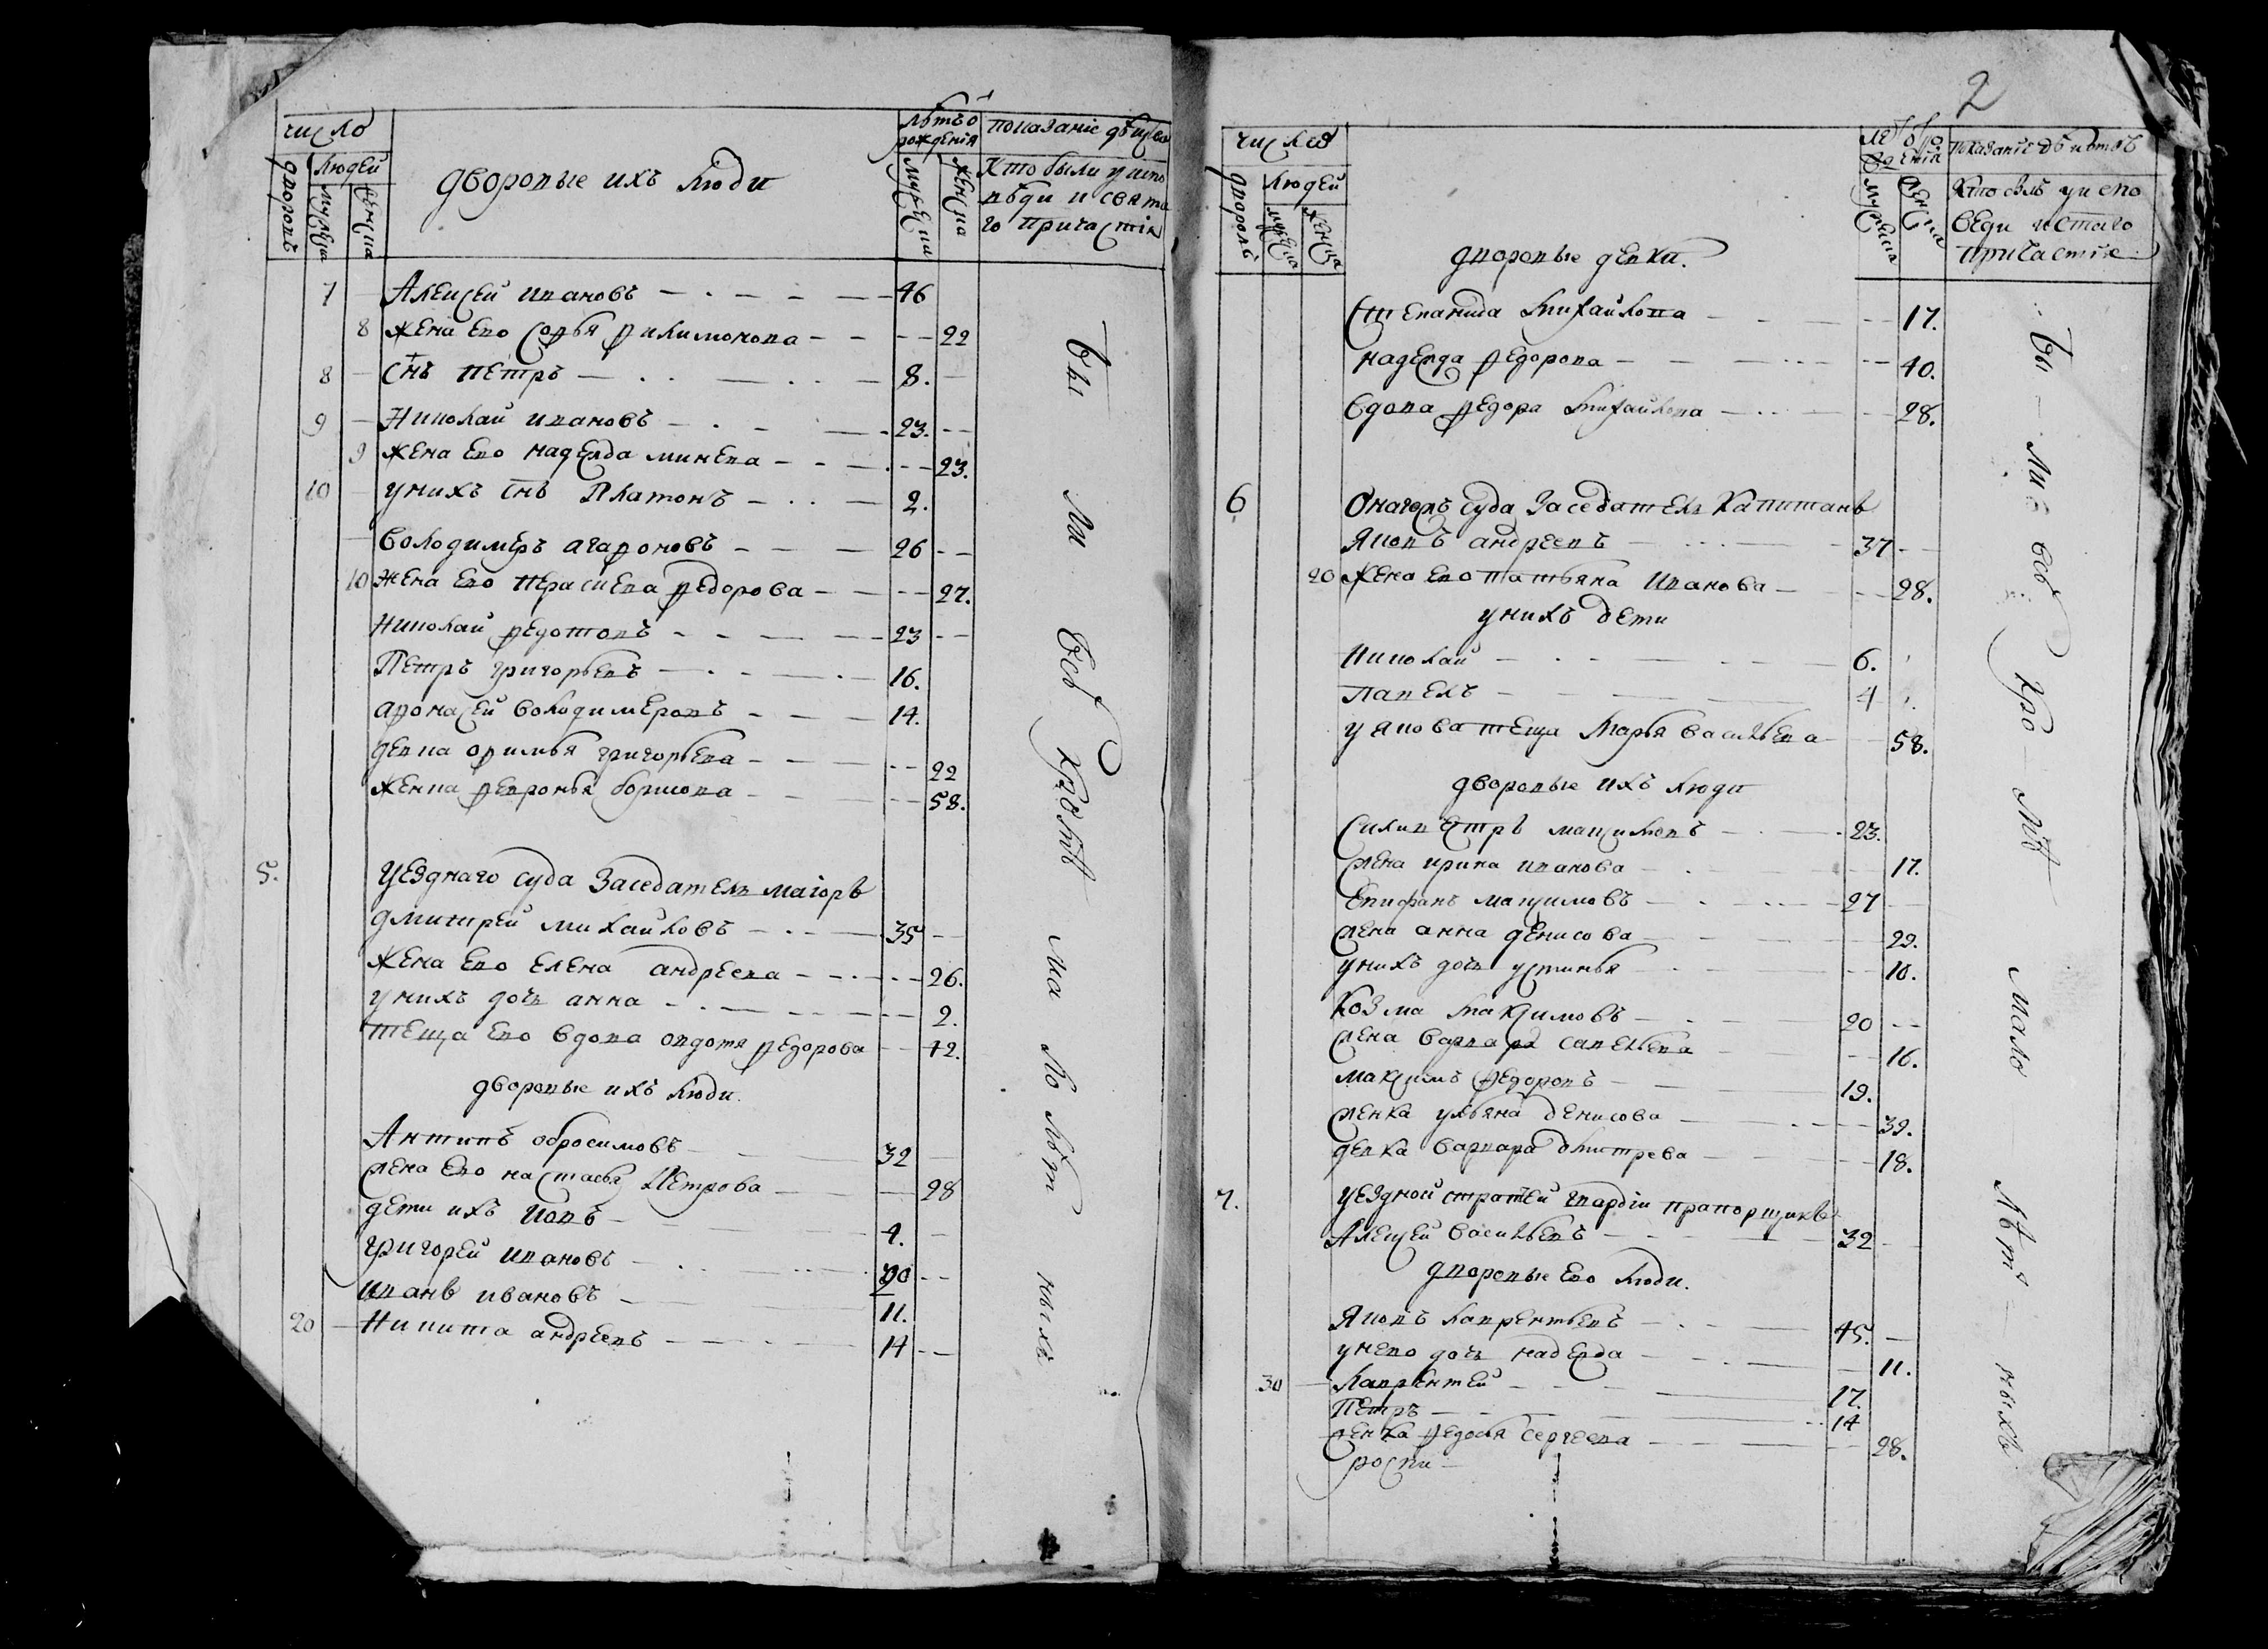 число
дворовъ
людей
мужеска
женска
дворовые ихъ люди
лѣтъ ѿ рождения
мужеска
женска
показаніе дѣйства
кто были у испо
вѣди и свята
го причастія
7 Алексей ивановъ 46
8 жена ево софья филимонова 22
8 снъ петръ 8.
9 Николай ивановъ 23.
9 жена ево надежда минева 23.
10 у нихъ снъ Платонъ 2.
володимеръ агафоновъ 26
10 жена ево перасковя федорова 27.
николай федотовъ 23
Петръ григорьевъ 16.
афонасей володимеровъ 14.
девка офимья григорьева 22
женка февронья борисова 58.
5. уезднаго суда заседатель маіоръ
дмитрей михайловъ 35
жена ево елена андреева 26.
у нихъ дочь анна 2.
теща ево вдова овдотя федорова 72.
дворовые ихъ люди.
Антипъ обросимовъ 32
жена ево настасья Петрова 28
дети ихъ иовъ 4.
григорей ивановъ 20
иванъ ивановъ 11.
20 Никита андреевъ 14
бы ли всѣ кромѣ ма ло лѣт ныхъ
2
число
дворовъ
людей
мужеска
женска
дворовые девки.
лѣ ѿ ро
жденія
мужеска
женска
показаніе дѣиства
кто былъ у испо
веди и стаго
причастия
степанида михайлова 17.
надежда федорова 40.
вдова федора михайлова 28.
6 суда заседатель капитанъ
яковъ андреевъ 37
20 жена ево татьяна иванова 28.
у нихъ дети
николай 6.
павелъ 4
у якова теща марья васильева 58.
дворовые ихъ люди
силивестръ максимовъ 23.
жена ирина иванова 17.
епифанъ максимовъ 27
жена анна денисова 22.
у нихъ дочь устинья 10.
козма максимовъ 20
жена варвара савельева 16.
максимъ федоровъ 19.
женка ульяна денисова 39.
девка варвара дмитрева 18.
7. уездной стряпчей гвардіи прапорщикъ
Алексей васильевъ 32
дворовые ево люди.
яковъ лаврентьевъ 45.
у нево дочь надежда 11.
30 лаврентей 17.
петръ 14
женка федосья сергеева 28.
роспи
бы ли всѣ кро мѣ мало лѣт ныхъ